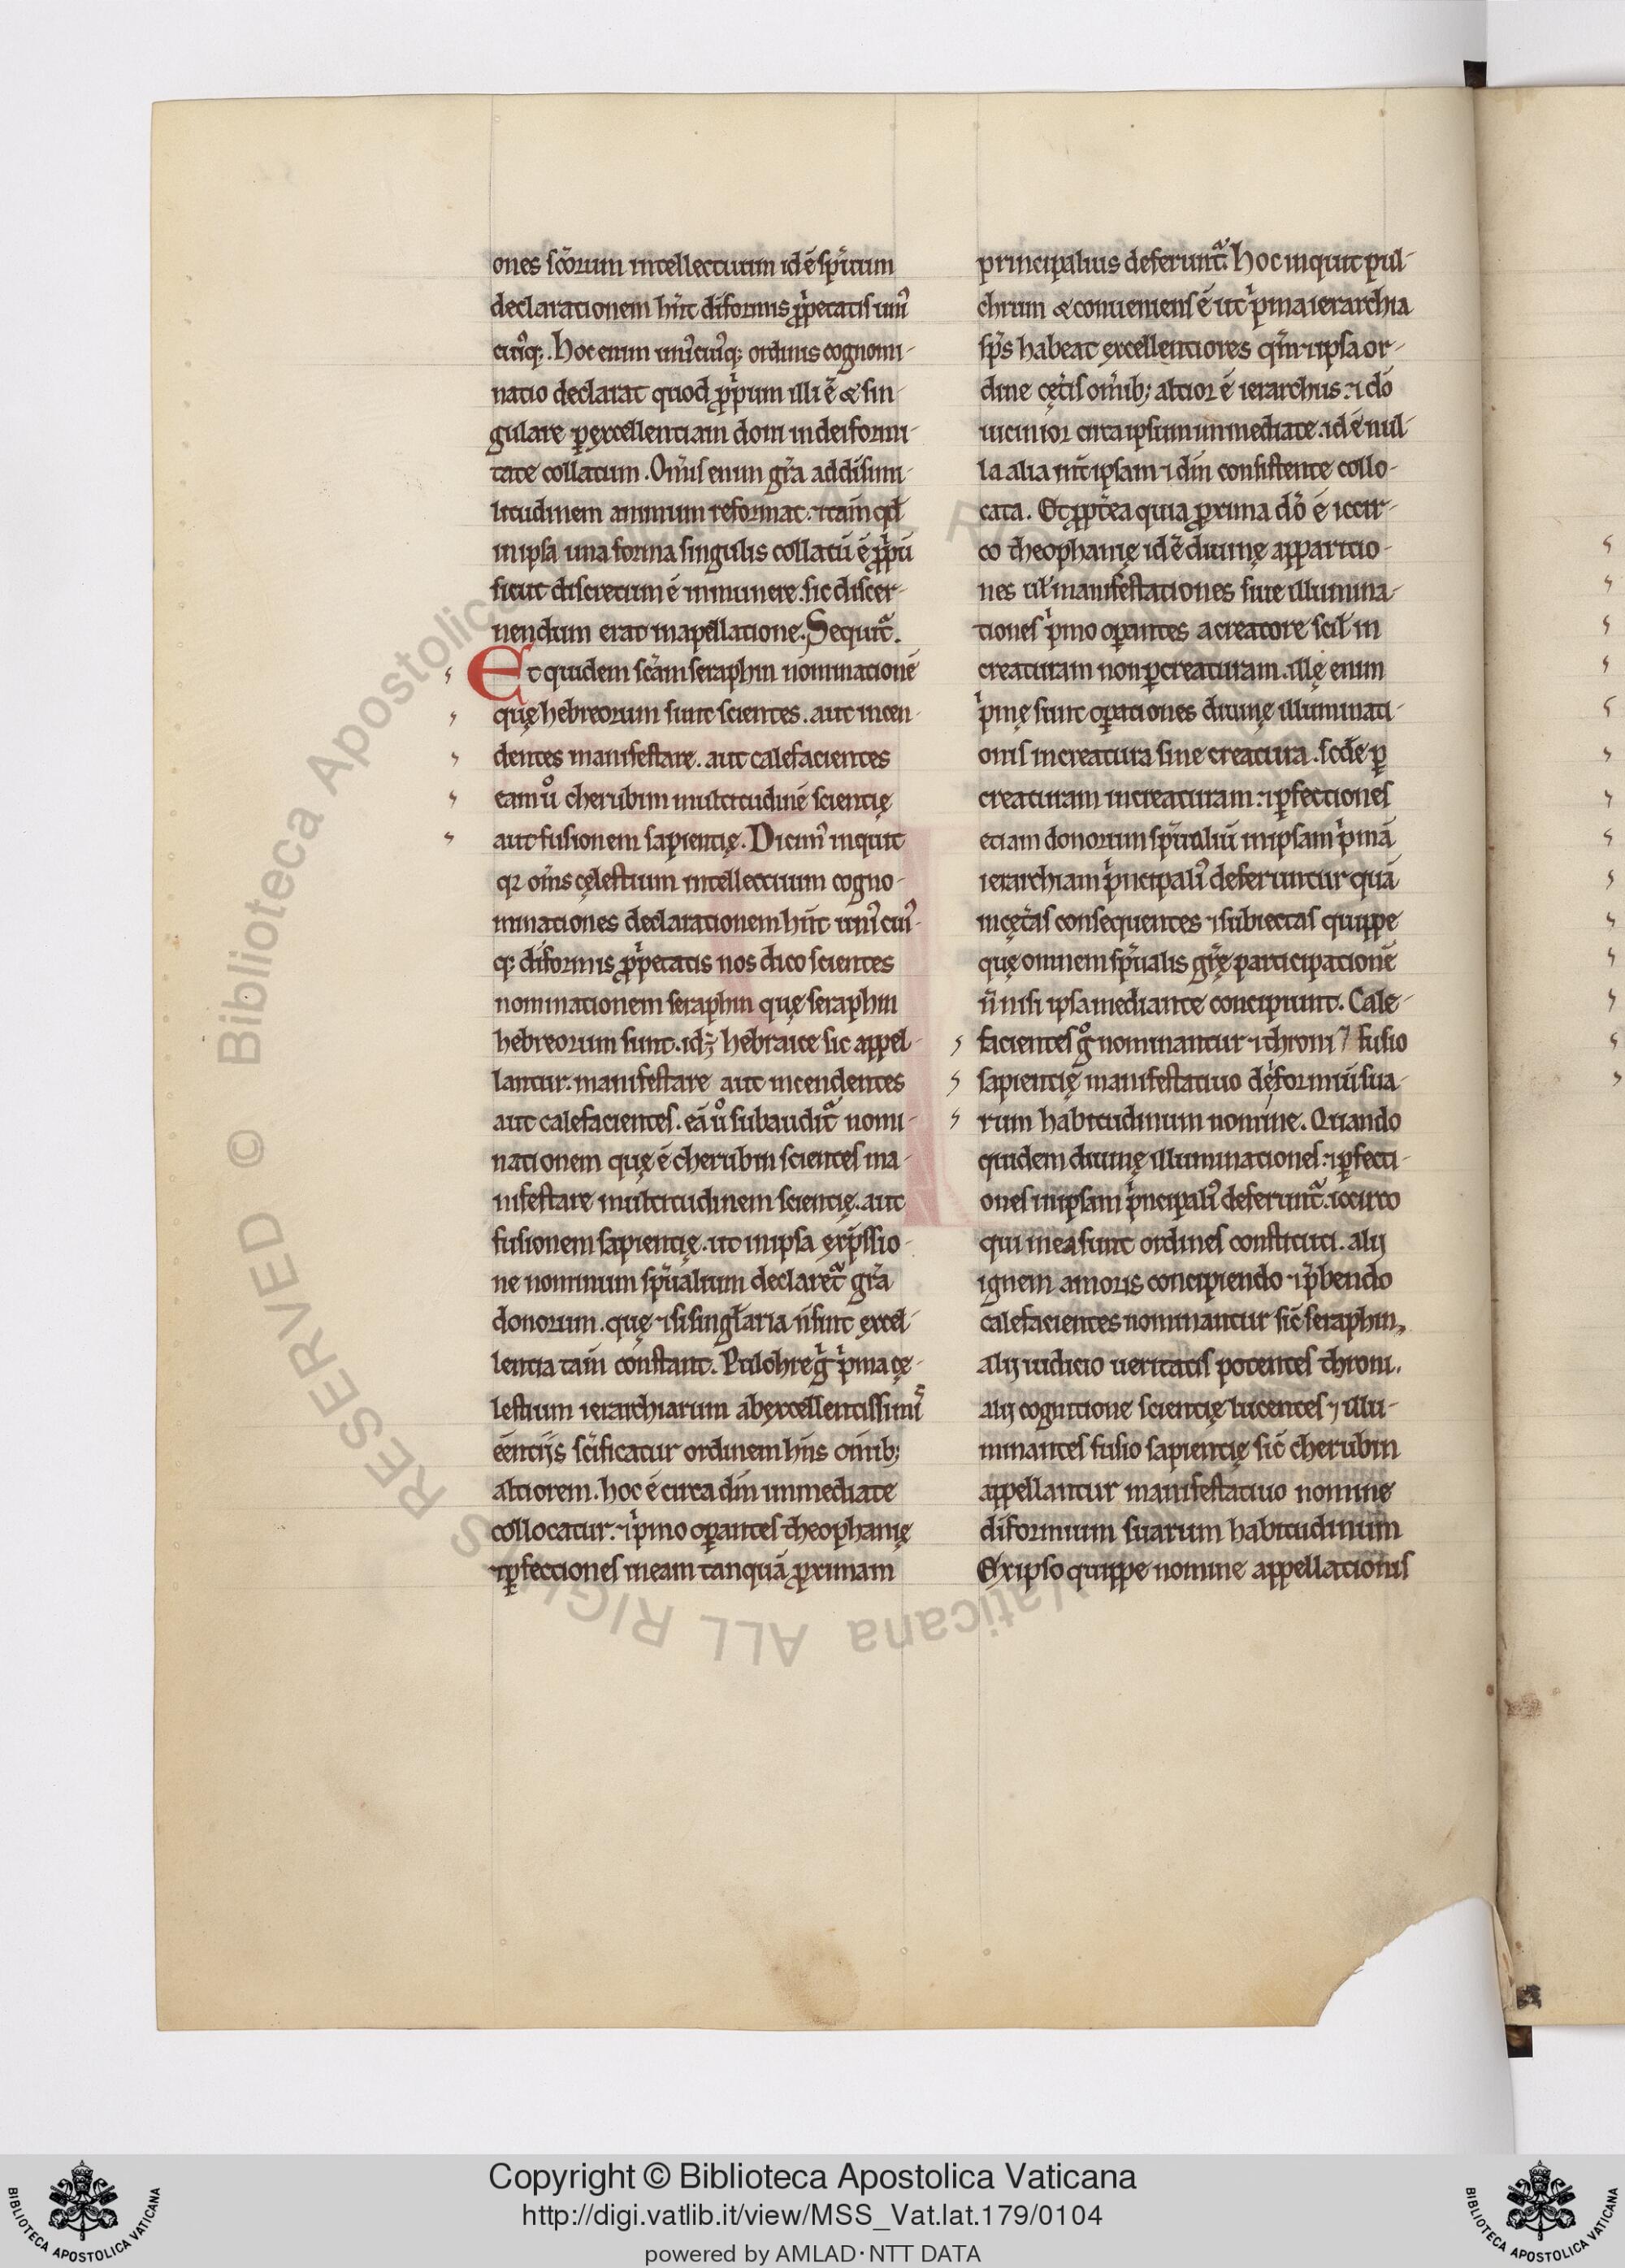 ones scōrum intellectuum id ē spirituum
declarationem hn̄t diformis pprietatis uni᾽
cui᾽q;. Hoc enim uni᾽cui᾽q; ordinis cognomi-
natio declarat quod pprium illi ē & sin-
gulare p excellentiam doni in deiformi-
tate collatum. Om̄is enim gr̄a ad dīsimi-
litudinem animum reformat. ⁊ tam̄ qd̄
in ipsa una forma singulis collatū ē ppriū
sicut discretum ē in munere. sic discer-
nendum erat in apellatione. Sequit᷑.
Et quidem scām seraphin nominationē
quę hebreorum sunt scientes. aut incen-
dentes manifestare. aut calefacientes
eam ů cherubim multitudinē scientię
aut fusionem sapientię. Dicim᾽ inquit
qꝛ om̄s cęlestium intellectuum cogno-
minationes declarationem hn̄t uni᾽cui᾽-
q; diformis pprietatis nos dico scientes
nominationem seraphin quę seraphin
hebreorum sunt. id ꝫ hebraice sic appel-
lantur. manifestare aut incendentes
aut calefacientes. eā ů subaudit᷑ nomi-
nationem quę ē cherubin scientes ma-
nifestare multitudinem scientię. aut
fusionem sapientię. ut in ipsa exp̄ssio-
ne nominum sp̄ualium declaret᷑ gr̄a
donorum. quę ⁊ si singl̄aria n̄ sunt excel-
lentia tam̄ constant. Pulchre gͥ pͥma cę-
lestium ierarchiarum ab excellentissimi᾽
eēntijs sc̄ificatur ordinem hn̄s om̄ib;
altiorem. hoc ē circa dm̄ immediate
collocatur. ⁊ pͥmo oꝑantes theophanię
⁊ ꝑfectiones in eam tanquā ꝓximam
principalius deferunt᷑. Hoc inquit pul-
chrum & conueniens ē ut pͥma ierarchia
sp̄s habeat excellentiores qm̄ ⁊ ipsa or-
dine cęt̄is om̄ib; altior ē ierarchiis. ⁊ dō
uicinior circa ipsum immediate. id ē nul-
la alia int̄ ipsam ⁊ dm̄ consistente collo-
cata. Et ꝓpt̄ea quia ꝓxima dō ē iccir-
co theophanię id ē diuinę apparitio-
nes ul̄ manifestationes siue illumina-
tiones pͥmo oꝑantes a creatore scil̄ in
creaturam non ꝑ creaturam. illę enim
pͥmę sunt oꝑationes diuinę illuminati-
onis in creatura sine creatura. scd̄e ꝑ
creaturam in creaturam. ⁊ ꝑfectiones
etiam donorum sp̄ualiū in ipsam pͥmā
ierarchiam pͥncipali᾽ deferuntur quā
in cęt̄as consequentes ⁊ subiectas quippe
quę omnem sp̄ualis gr̄ę participationē
n̄ nisi ipsa mediante concipiunt. Cale-
facientes g̊ nominantur ⁊ throni ⁊ fusio
sapientię manifestatiuo deͥformiū sua-
rum habitudinum nomine. Quando
quidem diuinę illuminationes. ⁊ ꝑfecti-
ones in ipsam pͥncipali᾽ deferunt᷑. iccirco
qui in ea sunt ordines constituti. alij
ignem amoris concipiendo ⁊ p̄bendo
calefacientes nominantur sic̄ seraphin,
alij iudicio ueritatis potentes throni.
alij cognitione scientię lucentes ⁊ illu-
minantes fusio sapientię sic̄ cherubin
appellantur manifestatiuo nomine
diformium suarum habitudinum
Ex ipso quippe nomine appellationis
Copyright © Biblioteca Apostolica Vaticana
http://digi.vatlib.it/view/MSS_Vat.lat.179/0104
powered by AMLAD·NTT DATA